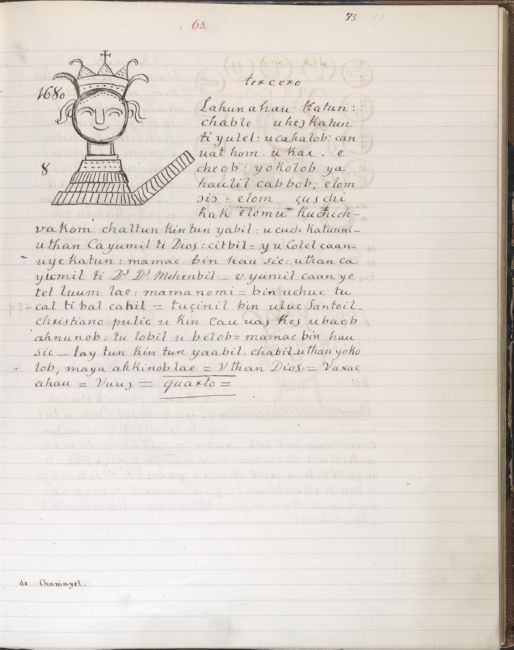 73
63.
tercero
1680
8
Lahun ahau Katun:
chable u hes katun
ti yulel: u cahalob: can
uat hom u Kax. e
cheob: yokolob ya
haulil cabbob; elom
sis: elom
Kak elomu Kuchich-
va kom chaltun kin tun yabil: u cuch Katunni-
u than Ca yumil ti Dios: citbil = y u Colel caan-
uye katun: mamac bin hau sic: u than ca
yumil ti Ds Ds Mehenbil - u yumil caan ye
tel luum lae: mamanomi = bin uchuc tu
cal ti bal cahil = tuçinil bin uluc Santoil-
christiano pulic u kin cau uas kes ubaob
ahnunob: tu lobil u belob = mamac bin hau
sic - lay tun kin tun yaabil: chabil u than yoko
lob, maya ahkinob lae = V than Dios = Vaxac
ahau = Vuuɔ = quarto =
de Chumayel.